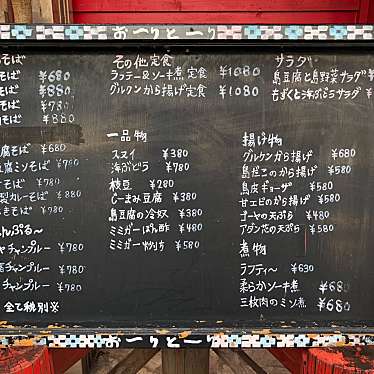 おーりとーり
そば ¥680
そば ¥880
そば ¥780
そば ¥880
腐そば ¥680
腐ミソそば ¥780
そば ¥780
製カレーそば ¥880
きそば ¥780
んぷる〜
ヤチャンプルー ¥780
チャンプルー ¥780
チャンプルー ¥780
全て税別※
その他定食
ラフテー&ソーキ煮定食 ¥1080
グルクンから揚げ定食 ¥1080
一品物
スヌイ ¥380
海ぶどう ¥780
枝豆 ¥280
じーまみ豆腐 ¥380
島豆腐の冷奴 ¥380
ミミガーぽん酢 ¥480
ミミガー炒り ¥580
サラダ
島豆腐と島野菜サラダ
もずくと海ぶどうサラダ
揚げ物
グルクンから揚げ ¥680
島だこのから揚げ ¥580
島皮ギョーザ ¥580
甘エビのから揚げ ¥580
ゴーヤの天ぷら ¥480
アダンだの天ぷら ¥580
煮物
ラフティ〜 ¥630
柔らかソーキ煮 ¥680
三枚肉のミソ煮 ¥680
おーりとーり